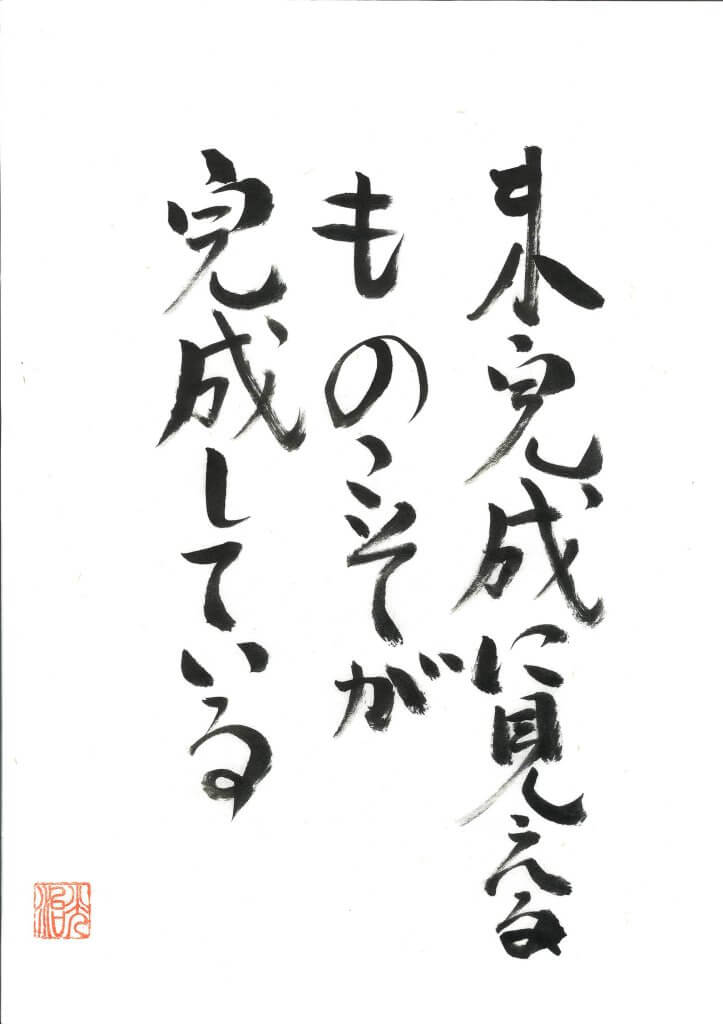 未完成に見える
ものこそが
完成している